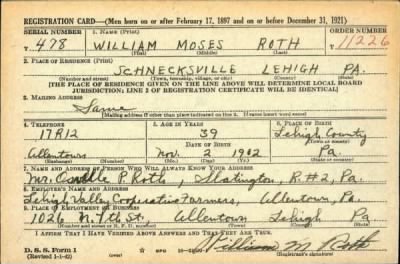 REGISTRATION CARD—(Men born on or after February 17, 1897 and on or before December 31, 1921)
SERIAL NUMBER 1. NAME (Print) ORDER NUMBER
T 478 WILLIAM MOSES ROTH 11226
(First) (Middle) (Last)
2. PLACE OF RESIDENCE (Print)
SCHNECKSVILLE LEHIGH PA.
(Number and street) (Town, township, village, or city) (County) (State)
[THE PLACE OF RESIDENCE GIVEN ON THE LINE ABOVE WILL DETERMINE LOCAL BOARD
JURISDICTION; LINE 2 OF REGISTRATION CERTIFICATE WILL BE IDENTICAL]
3. MAILING ADDRESS
Same
[Mailing address if other than place indicated on line 2. If same insert word same]
4. TELEPHONE 5. AGE IN YEARS 6. PLACE OF BIRTH
17R12 39 Lehigh County
DATE OF BIRTH (Town or county)
Allentown Nov. 2 1902 Pa.
(Exchange) (Number) (Mo.) (Day) (Yr.) (State or country)
7. NAME AND ADDRESS OF PERSON WHO WILL ALWAYS KNOW YOUR ADDRESS
Mr. P. Roth, Slatington, R.#2, Pa.
8. EMPLOYER'S NAME AND ADDRESS
Lehigh Valley Cooperative Farmers, Allentown, Pa.
9. PLACE OF EMPLOYMENT OR BUSINESS
1026 N. 7th St., Allentown Lehigh Pa
(Number and street or R. F. D. number) (Town) (County) (State)
I AFFIRM THAT I HAVE VERIFIED ABOVE ANSWERS AND THAT THEY ARE TRUE.
D. S. S. Form 1 William M. Roth
(Revised 1-1-42) (Registrant's signature)